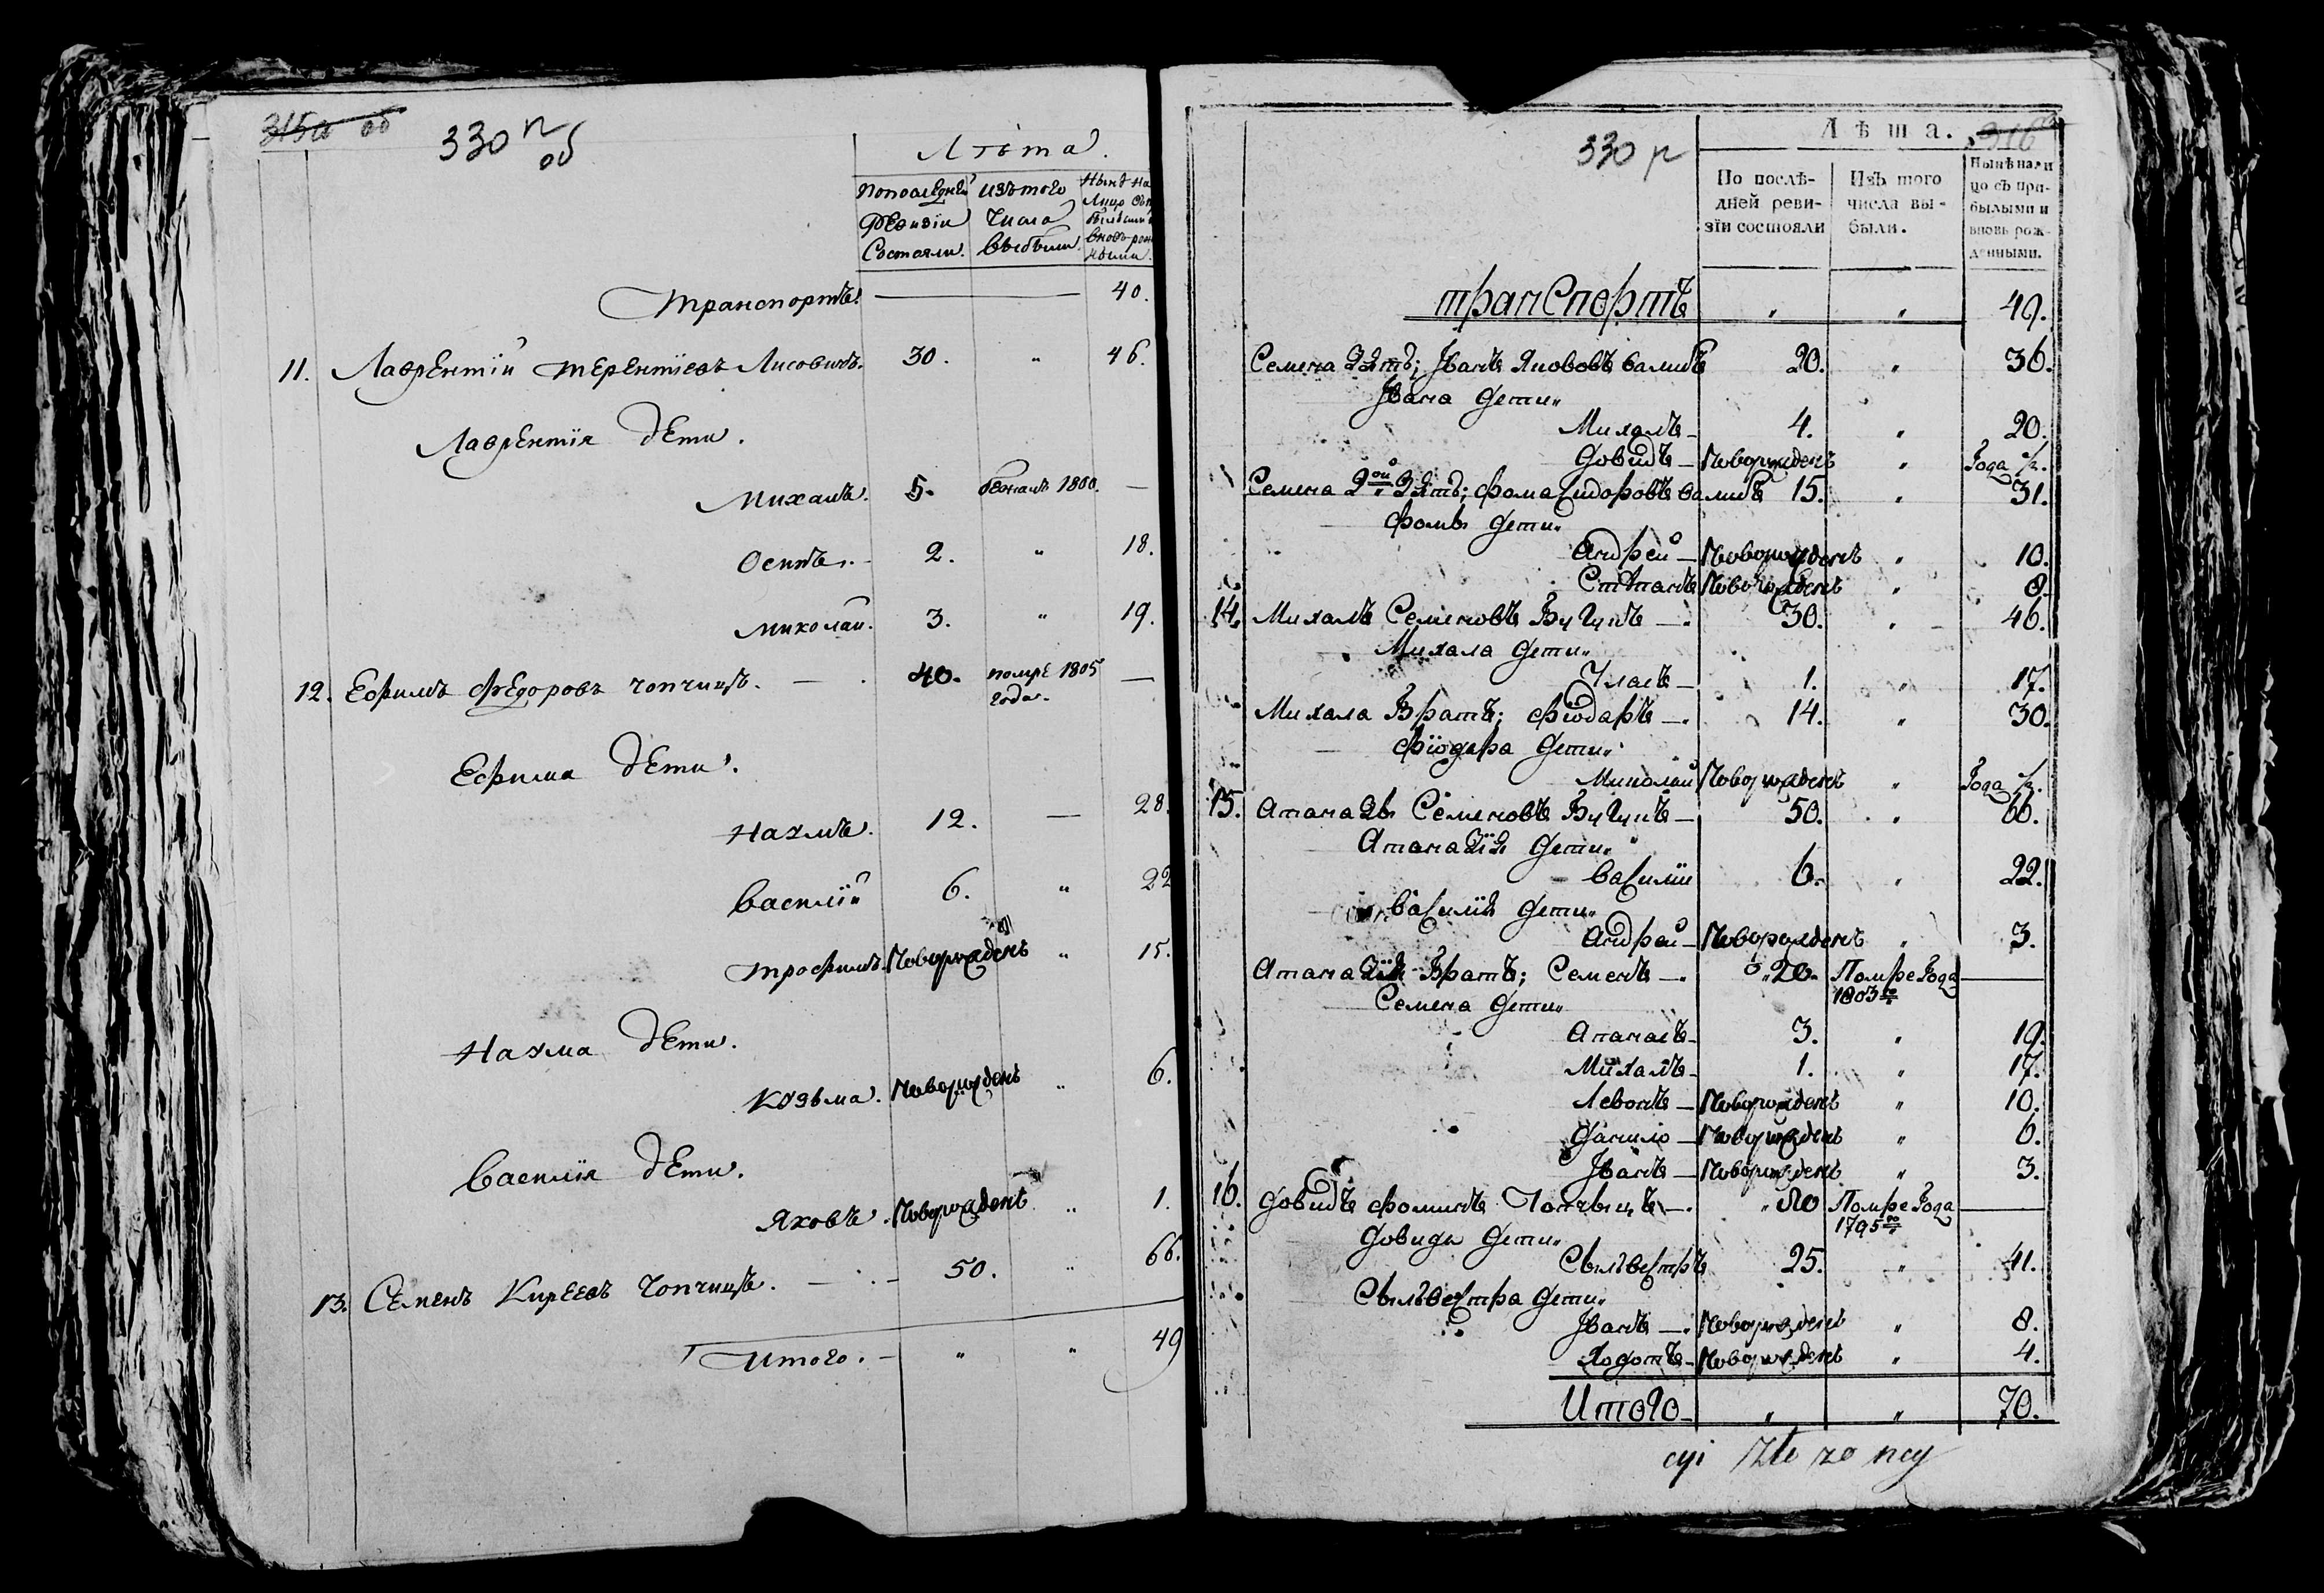 315а об
330 п
об
Лѣта.
По последней ревизіи Состояли.
изъ того Числа выбыли.
Транспортъ. 40.
11. Лаврентіи терентіевъ Лисовичъ. 30. " 46.
Лаврентія дети.
Михалъ. 5. бежалъ 1800. —
Осипъ. 2. " 18.
Миколаи. 3. " 19.
12. Ефимъ Федоровъ чопчицъ. — 40. помре 1805 —
года.
Ефима дети.
Нахмъ. 12. — 28.
Василіи 6. " 22
трофимъ. Новорожденъ " 15.
Нахма дети.
Козьма. Новорожденъ " 6.
Василія дети.
Яковъ. Новорожденъ " 1.
13. Семенъ Киреевъ чопчицъ. — 50. " 66.
Итого. — " " 49
330 п
Лѣта. 316
По послѣдней ревизіи состояли
Изъ того числа выбыли.
Нынѣ на лицо съ прибылыми и вновь рожденными.
транспортъ " " 49.
Семена Зять; Иванъ Якововъ 20. " 36.
Ивана дети
Михалъ 4. " 20.
довидъ — Новорожденъ " Года ½.
Семена 2ой Зять; фома Сидоровъ 15. " 31.
фомы дети
андрей — Новорожденъ " 10.
Степанъ Новорожденъ " 8
14. Михалъ Семеновъ — 30. " 46.
Михала дети
Уласъ — 1. " 17.
Михала Братъ; фіодаръ — 14. " 30.
фіодара дети
Миколай Новорожденъ " Года ½.
15. Апанасъ Семеновъ — 50. " 66.
Апанасія дети
Василіи 6. " 22.
Василія дети
андрей — Новорожденъ " 3.
Апанасія Братъ; Семенъ — 20. Помре Года —
1803го
Семена дети
Апанасъ — 3. " 19.
Михалъ — 1. " 17.
Левонъ — Новорожденъ " 10.
данило — Новорожденъ " 6.
Иванъ — Новорожденъ " 3.
16. довидъ фоминъ — 80 Помре Года —
1795го
довида дети
Сильвестръ 25. " 41.
Сильвестра дети
Иванъ — Новорожденъ " 8.
Ходотъ — Новорожденъ " 4.
Итого — " " 70.